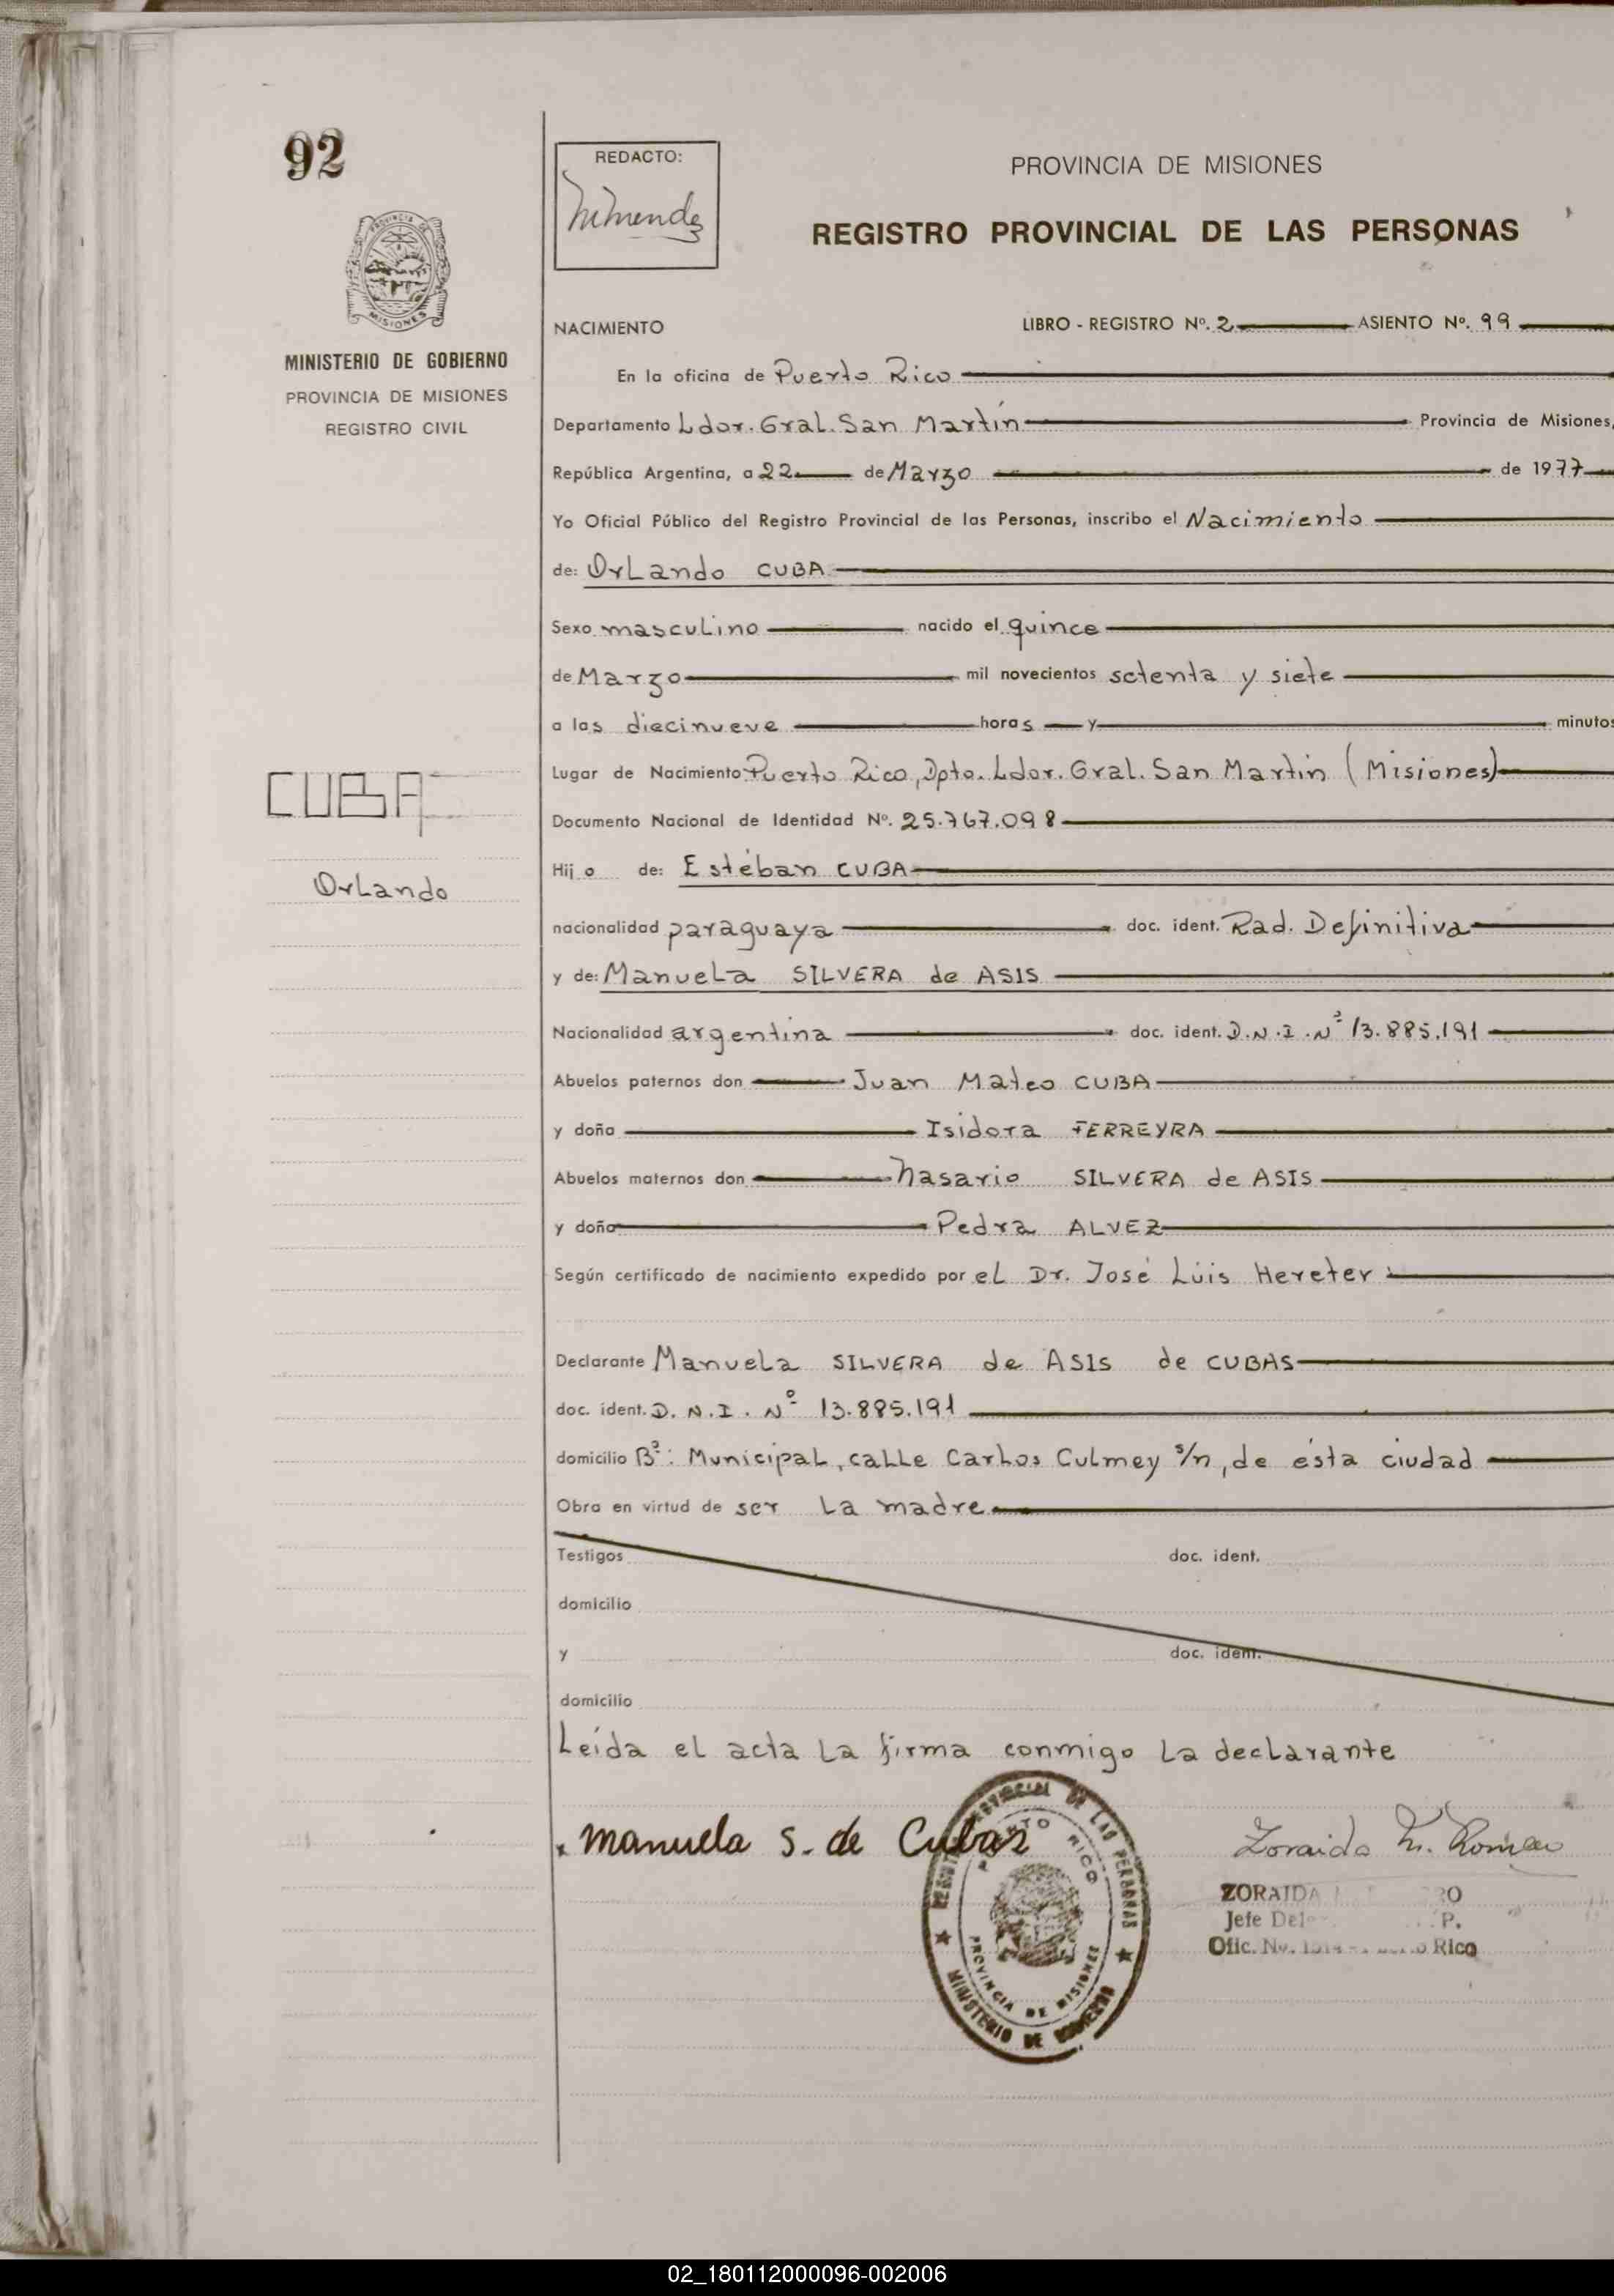 92
REDACTO:
PROVINCIA DE MISIONES
REGISTRO PROVINCIAL DE LAS PERSONAS
MISIONES
MINISTERIO DE GOBIERNO
PROVINCIA DE MISIONES
REGISTRO CIVIL
NACIMIENTO LIBRO - REGISTRO Nº. 2 ASIENTO Nº. 99
En la oficina de Puerto Rico
Departamento Ldor. Gral. San Martín Provincia de Misiones,
República Argentina, a 22 de Marzo de 1977
Yo Oficial Público del Registro Provincial de las Personas, inscribo el Nacimiento
de: Orlando CUBA
Sexo masculino nacido el quince
de Marzo mil novecientos setenta y siete
a las diecinueve horas y minutos
Lugar de Nacimiento Puerto Rico, Dpto. Ldor. Gral. San Martín (Misiones)
Documento Nacional de Identidad Nº. 25.767.098
CUBA
Orlando
Hijo de: Estéban CUBA
nacionalidad paraguaya doc. ident. Rad. Definitiva
y de: Manuela SILVERA de ASIS
Nacionalidad argentina doc. ident. D.N.I. Nº 13.885.191
Abuelos paternos don Juan Mateo CUBA
y doña Isidora FERREYRA
Abuelos maternos don Nasario SILVERA de ASIS
y doña Pedra ALVEZ
Según certificado de nacimiento expedido por el Dr. José Lúis Hereter
Declarante Manuela SILVERA de ASIS de CUBAS
doc. ident. D.N.I. Nº 13.885.191
domicilio Bº: Municipal, calle Carlos Culmey s/n, de ésta ciudad
Obra en virtud de ser la madre
Testigos doc. ident.
domicilio
y doc. ident.
domicilio
Leída el acta la firma conmigo la declarante
Manuela S. de Cubas
Zoraida M. Romero
PUERTO RICO
PROVINCIAL DE LAS PERSONAS
PROVINCIA DE MISIONES
MINISTERIO DE GOBIERNO
ZORAIDA
Jefe
Ofic. No. Rico
02_180112000096-002006